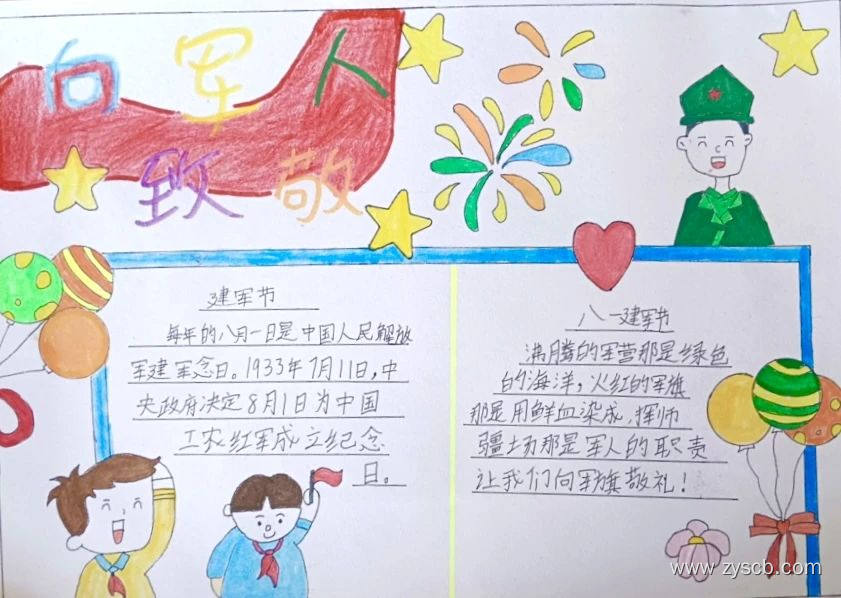 向军人
致敬
建军节
每年的八月一日是中国人民解放
军建军念日。1933年7月11日,中
央政府决定8月1日为中国
工农红军成立纪念
日。
八一建军节
沸腾的军营那是绿色
的海洋,火红的军旗
那是用鲜血染成,挥师
疆场那是军人的职责
让我们向军旗敬礼!
www.zyscb.com